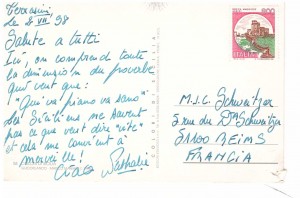 Terrasini,
le 8 VII 98
Salute a tutti
Ici, on comprend toute
la dimension du proverbe
qui veut que :
"Qui va piano va sano"
Les Siciliens ne savent
pas ce que veut dire "vite"
et cela me convient à
merveille !
Ciao Nathalie
800
ITALIA
M.J.C. Schweitzer
5 rue du Dr Schweitzer
51100 REIMS
FRANCIA